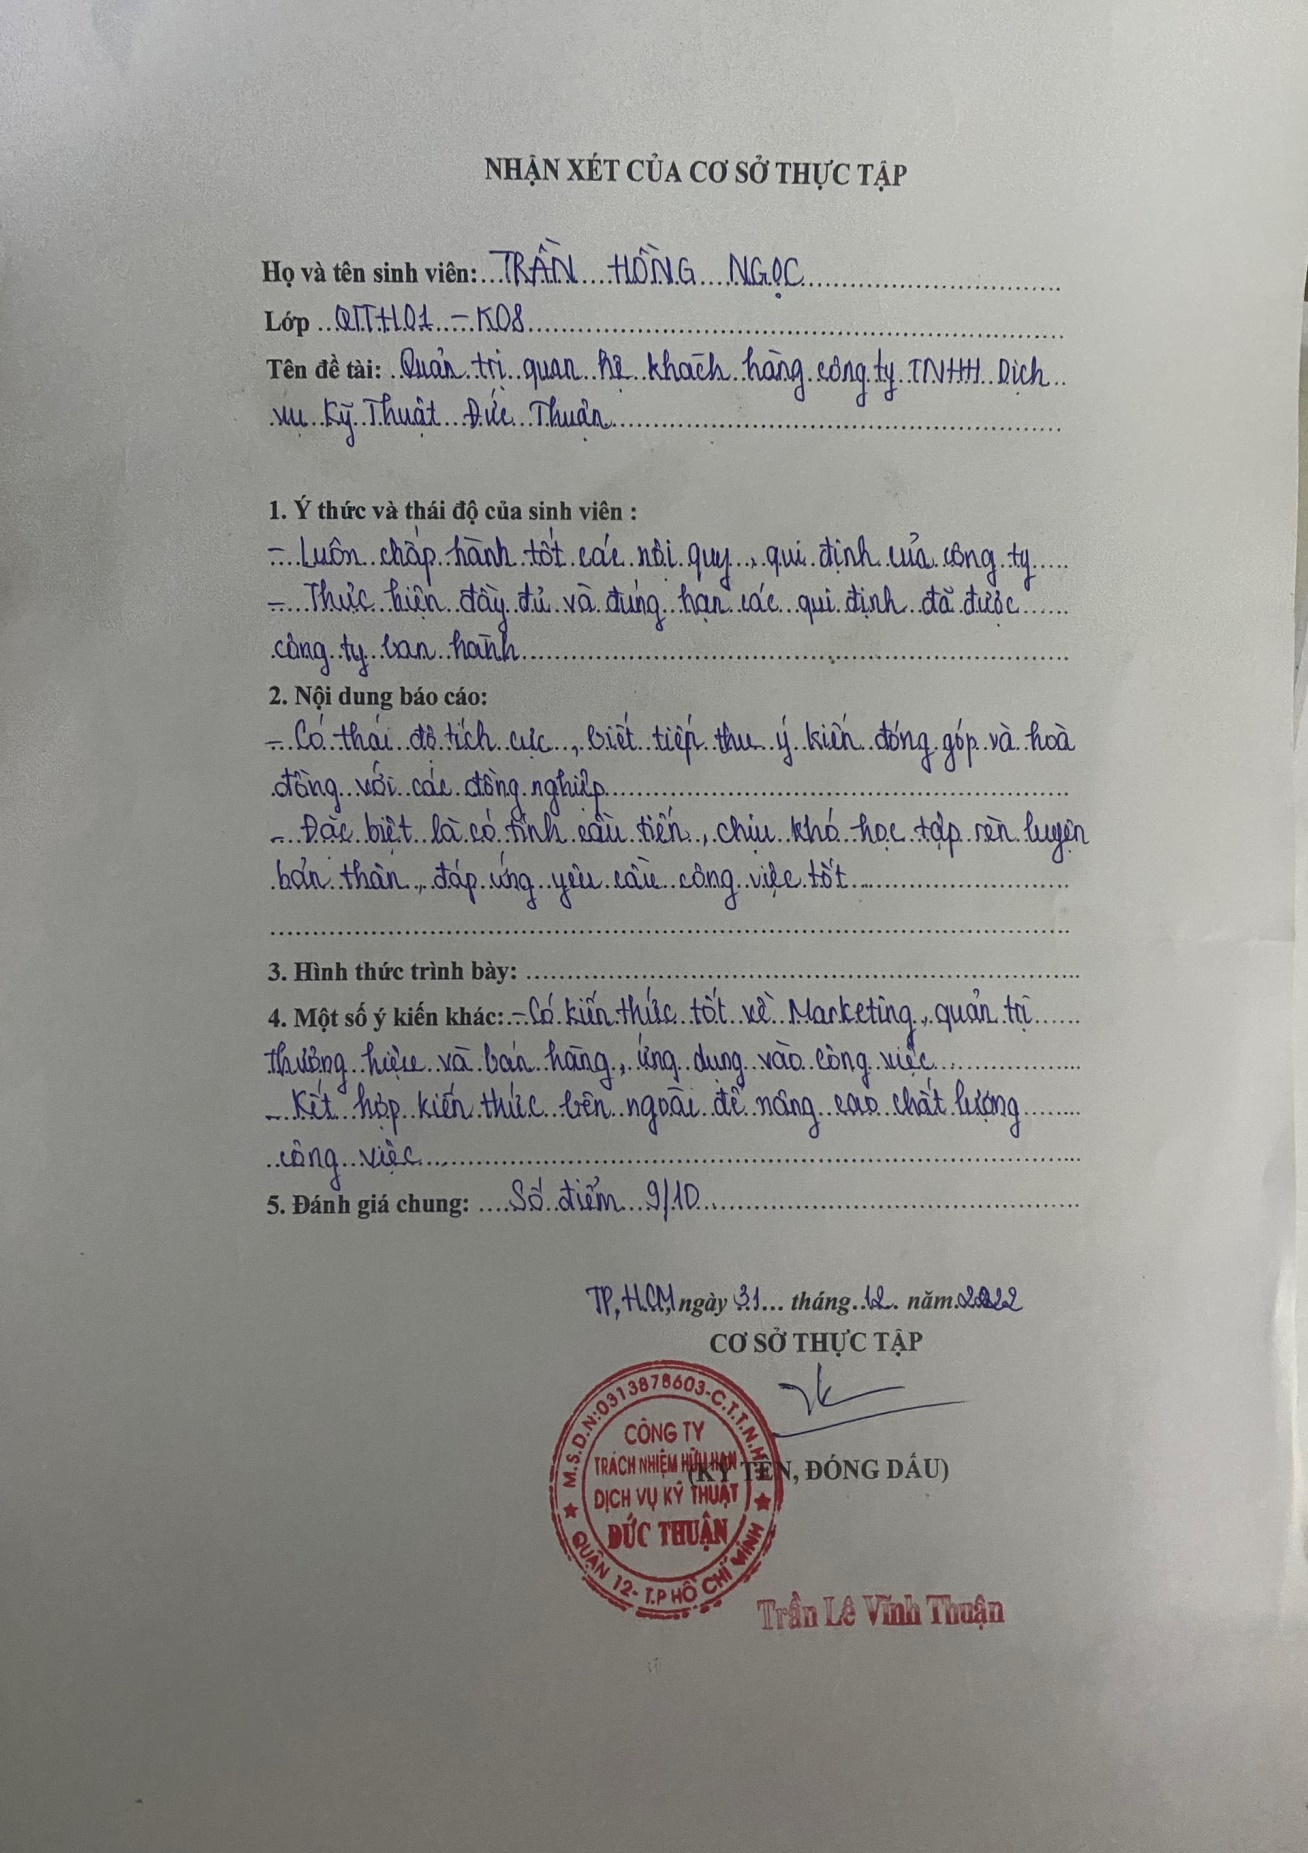 NHẬN XÉT CỦA CƠ SỞ THỰC TẬP
Họ và tên sinh viên: TRẦN HỒNG NGỌC
Lớp QTTH01 - K08
Tên đề tài: Quản trị quan hệ khách hàng công ty TNHH Dịch
vụ Kỹ Thuật Đức Thuận
1. Ý thức và thái độ của sinh viên :
- Luôn chấp hành tốt các nội quy, qui định của công ty
- Thực hiện đầy đủ và đúng hạn các qui định đã được
công ty ban hành
2. Nội dung báo cáo:
- Có thái độ tích cực, biết tiếp thu ý kiến đóng góp và hoà
đồng với các đồng nghiệp
- Đặc biệt là có tính cầu tiến, chịu khó học tập rèn luyện
bản thân, đáp ứng yêu cầu công việc tốt
3. Hình thức trình bày:
4. Một số ý kiến khác: - Có kiến thức tốt về Marketing, quản trị
thương hiệu và bán hàng, ứng dụng vào công việc
- Kết hợp kiến thức bên ngoài để nâng cao chất lượng
công việc
5. Đánh giá chung: Số điểm 9/10
TP, HCM, ngày 31 tháng 12 năm 2022
CƠ SỞ THỰC TẬP
M.S.D.N:0313878603-C.T.T.N.H.H
CÔNG TY
TRÁCH NHIỆM HỮU HẠN
(KÝ TÊN, ĐÓNG DẤU)
DỊCH VỤ KỸ THUẬT
ĐỨC THUẬN
QUẬN 12-T.P HỒ CHÍ MINH
Trần Lê Vĩnh Thuận